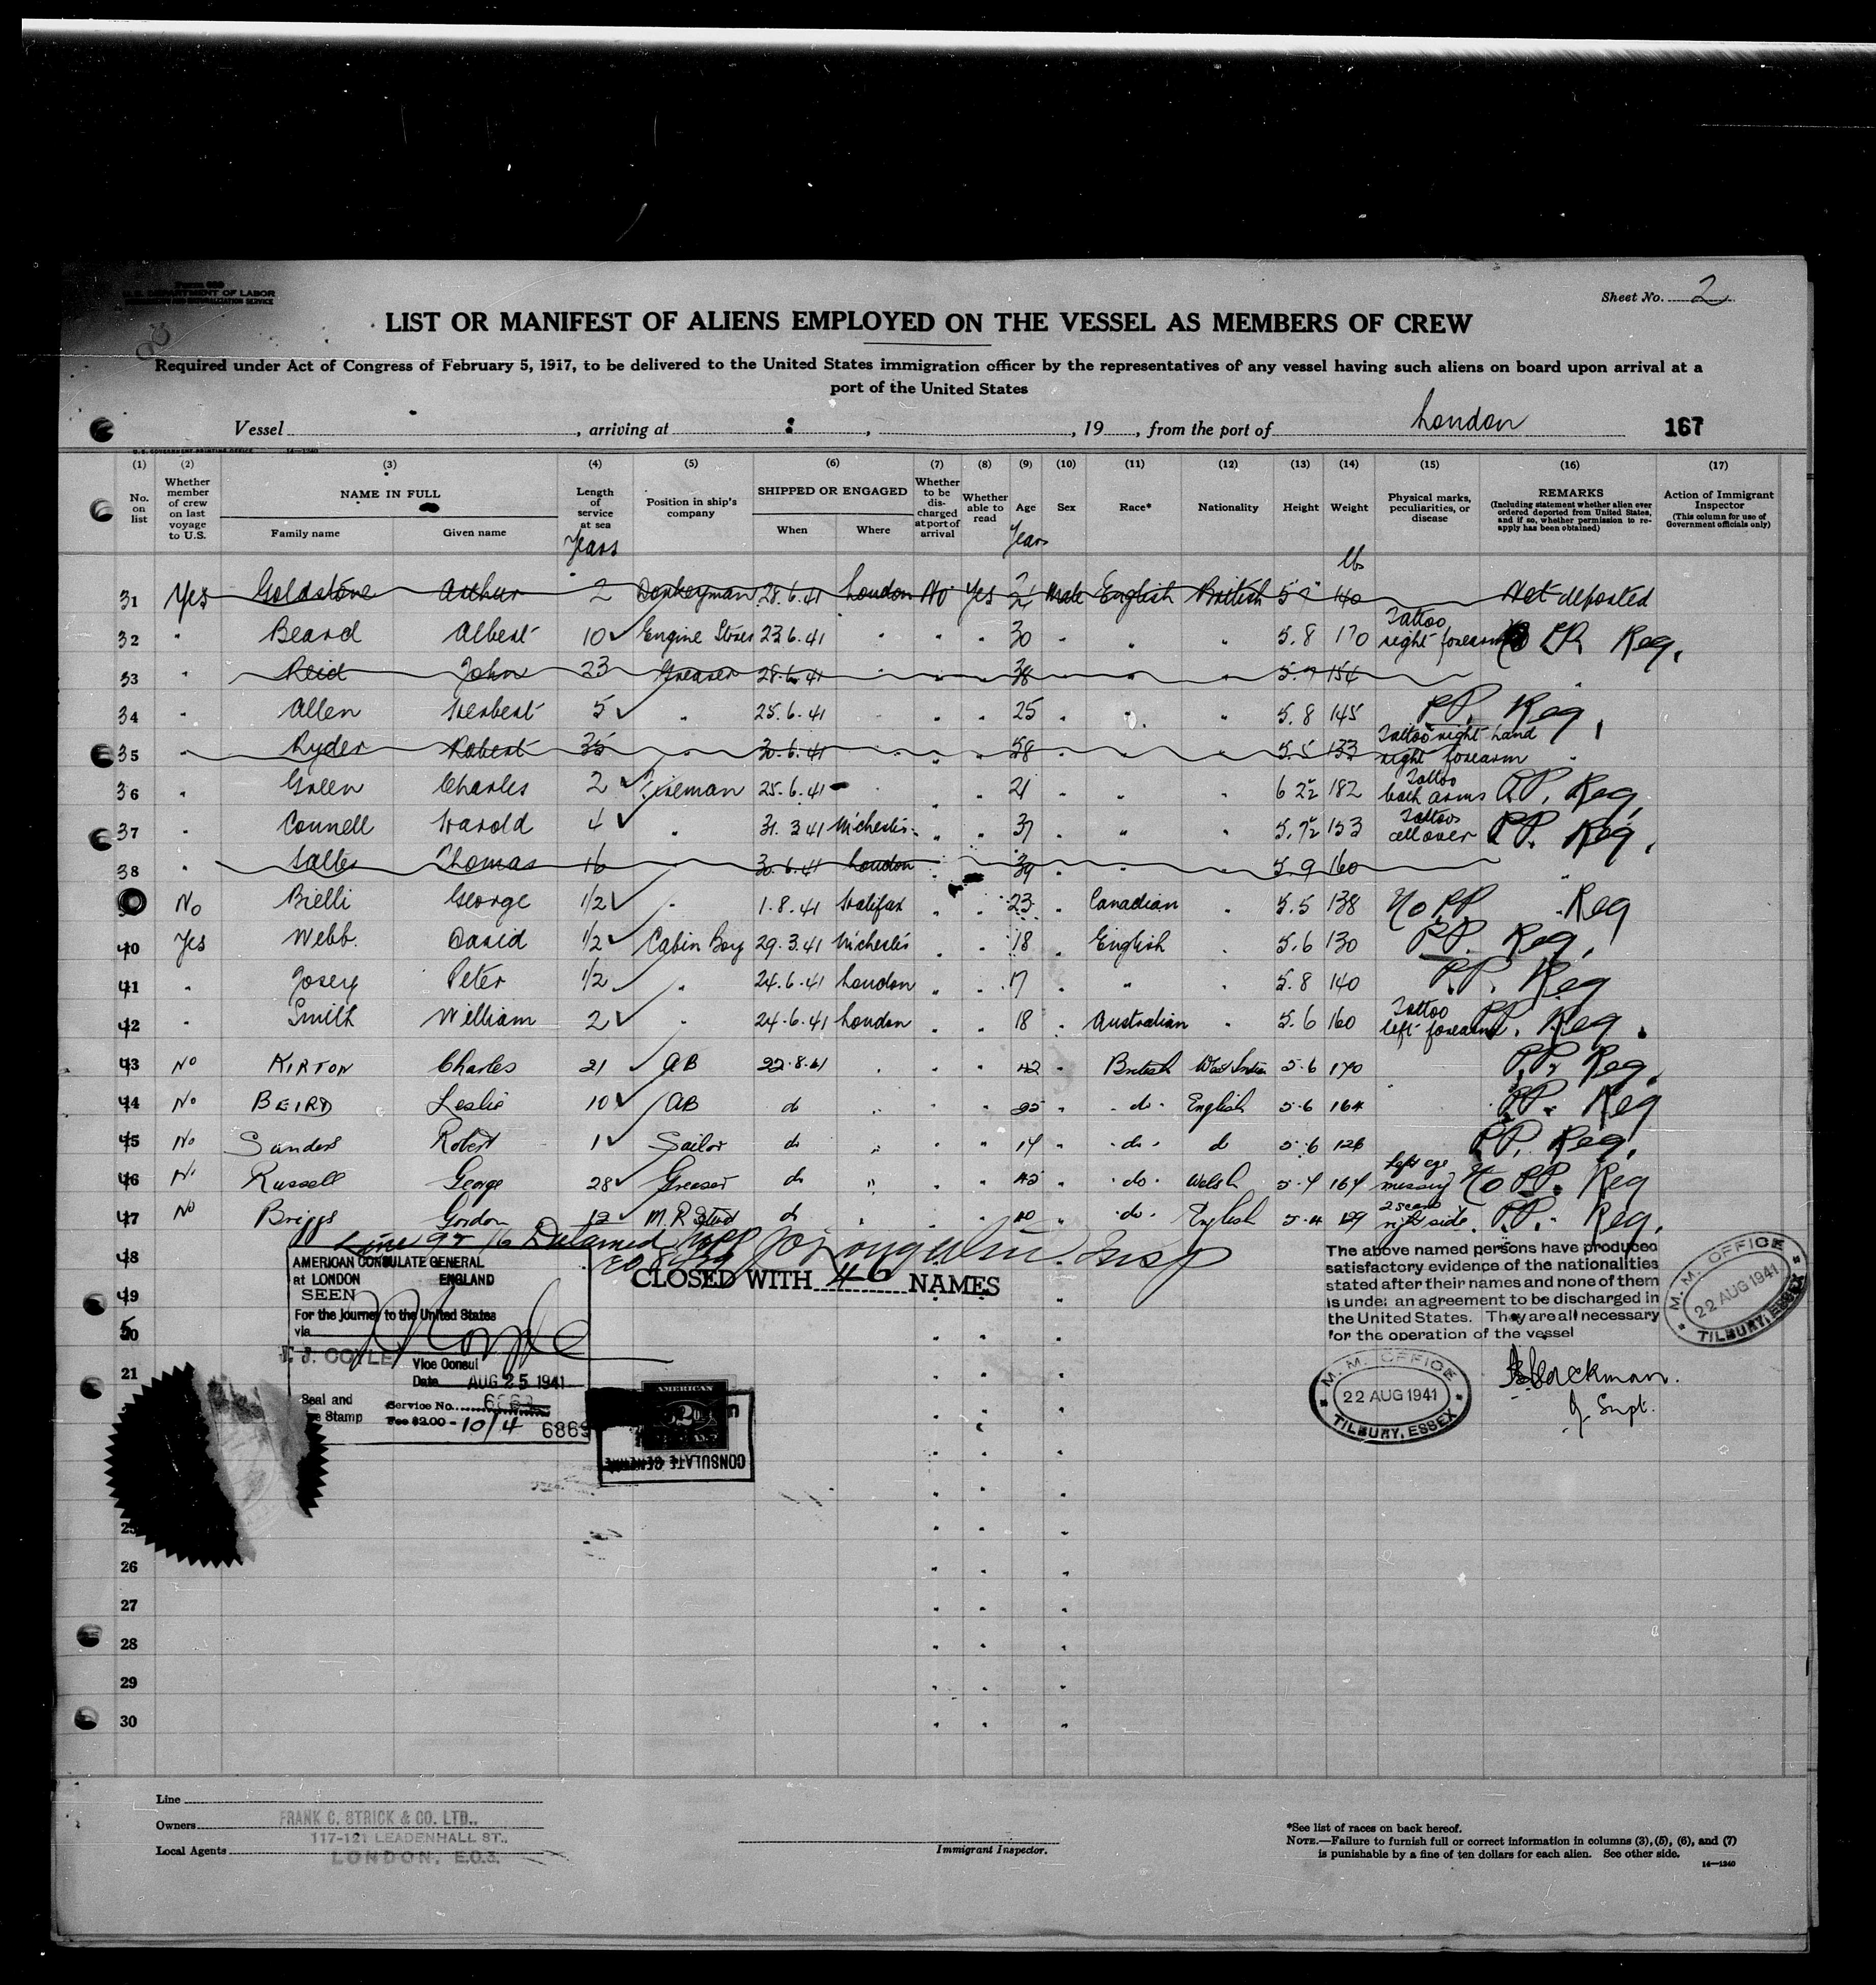 Form 689
U. S. DEPARTMENT OF LABOR
IMMIGRATION AND NATURALIZATION SERVICE
Sheet No. 2
LIST OR MANIFEST OF ALIENS EMPLOYED ON THE VESSEL AS MEMBERS OF CREW
Required under Act of Congress of February 5, 1917, to be delivered to the United States immigration officer by the representatives of any vessel having such aliens on board upon arrival at a
port of the United States
Vessel , arriving at , , 19 , from the port of London 167
U. S. GOVERNMENT PRINTING OFFICE 14—1240
(1) (2) (3) (4) (5) (6) (7) (8) (9) (10) (11) (12) (13) (14) (15) (16) (17)
No. on list
Whether member of crew on last voyage to U.S.
NAME IN FULL
Family name Given name
Length of service at sea
Years
Position in ship's company
SHIPPED OR ENGAGED
When Where
Whether to be discharged at port of arrival
Whether able to read
Age
Years
Sex
Race*
Nationality
Height
Weight
lb
Physical marks, peculiarities, or disease
REMARKS
(Including statement whether alien ever ordered deported from United States, and if so, whether permission to reapply has been obtained)
Action of Immigrant Inspector
(This column for use of Government officials only)
31 Yes Goldstone Arthur 2 Donkeyman 28.6.41 London No Yes Male English British 140 Not deported
32 " Beard Albert 10 Engine Stores 23.6.41 " " " 30 " " " 5.8 170 Tattoo right forearm PP. Reg.
33 " Reid John 23 Greaser 28.6.41 38 " " " 5.7 154 "
34 " Allen Herbert 5 " 25.6.41 " " " 25 " " " 5.8 145 PP. Reg.
35 " Ryder Robert 35 " 30.6.41 " " 58 " " " 5.5 133 Tattoo right hand right forearm "
36 " Green Charles 2 Fireman 25.6.41 " " " 21 " " " 6 2½ 182 Tattoo both arms PP. Reg.
37 " Connell Harold 4 " 31.3.41 M'chester " " 37 " " " 5.7½ 153 Tattoos all over PP. Reg.
38 " Thomas 16 " 30.6.41 London " " 39 " 5.9 160 "
No Bielli George 1/2 " 1.8.41 Halifax " " 23 " Canadian " 5.5 138 No PP. Reg
40 Yes Webb. David 1/2 Cabin Boy 29.3.41 M'chester " " 18 " English " 5.6 130 PP. Reg.
41 " Josey Peter 1/2 " 24.6.41 London " " 17 " " " 5.8 140 PP. Reg
42 " Smith William 2 " 24.6.41 London " " 18 " Australian " 5.6 160 Tattoo left forearm PP. Reg.
43 No KIRTON Charles 21 AB 22.8.41 " " " 42 " British West Indian 5.6 170 PP. Reg.
44 No BEIRD Leslie 10 AB do " " " " do English 5.6 164 PP. Reg
45 No Sanders Robert 1 Sailor do " " " 17 " do do 5.6 126 PP. Reg.
46 No Russell George 28 Greaser do " " " 45 " do Welsh 5.4 164 Left eye missing No PP. Reg
47 No Briggs Gordon 12 do " " " 40 " do English 5.4 129 2 scars right side. PP. Reg.
48 Detained Insp
CLOSED WITH 46 NAMES
49
50
21
25
26
27
28
29
30
AMERICAN CONSULATE GENERAL
at LONDON ENGLAND
SEEN
For the journey to the United States
via
J. J. COYLE
Vice Consul
Date AUG 25 1941
Seal and Fee Stamp
Service No. 6869
Fee $2.00 - 10/4 6869
AMERICAN
CONSULATE GENERAL
The above named persons have produced
satisfactory evidence of the nationalities
stated after their names and none of them
is under an agreement to be discharged in
the United States. They are all necessary
for the operation of the vessel
M. M. OFFICE
22 AUG 1941
TILBURY, ESSEX
M. M. OFFICE
22 AUG 1941
TILBURY, ESSEX
Supt.
Line
Owners FRANK C. STRICK & CO. LTD.,
117-121 LEADENHALL ST.,
Local Agents LONDON, E.C.3.
Immigrant Inspector.
*See list of races on back hereof.
NOTE.—Failure to furnish full or correct information in columns (3), (5), (6), and (7)
is punishable by a fine of ten dollars for each alien. See other side.
14—1240